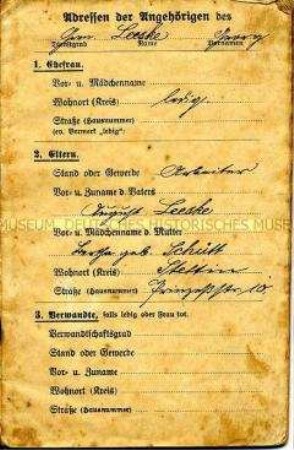 Adressen der Angehörigen des
Leeske Georg
Dienstgrad Name Vornamen
1. Ehefrau.
Vor- u. Mädchenname
Wohnort (Kreis) ledig.
Straße (Hausnummer)
(ev. Vermerk „ledig“)
2. Eltern.
Stand oder Gewerbe Arbeiter
Vor- u. Zuname d. Vaters
August Leeske
Vor- u. Mädchenname d. Mutter
Bertha geb. Schütt
Wohnort (Kreis) Stettin
Straße (Hausnummer) 10
3. Verwandte, falls ledig oder Frau tot.
Verwandtschaftsgrad
Stand oder Gewerbe
Vor- u. Zuname
Wohnort (Kreis)
Straße (Hausnummer)